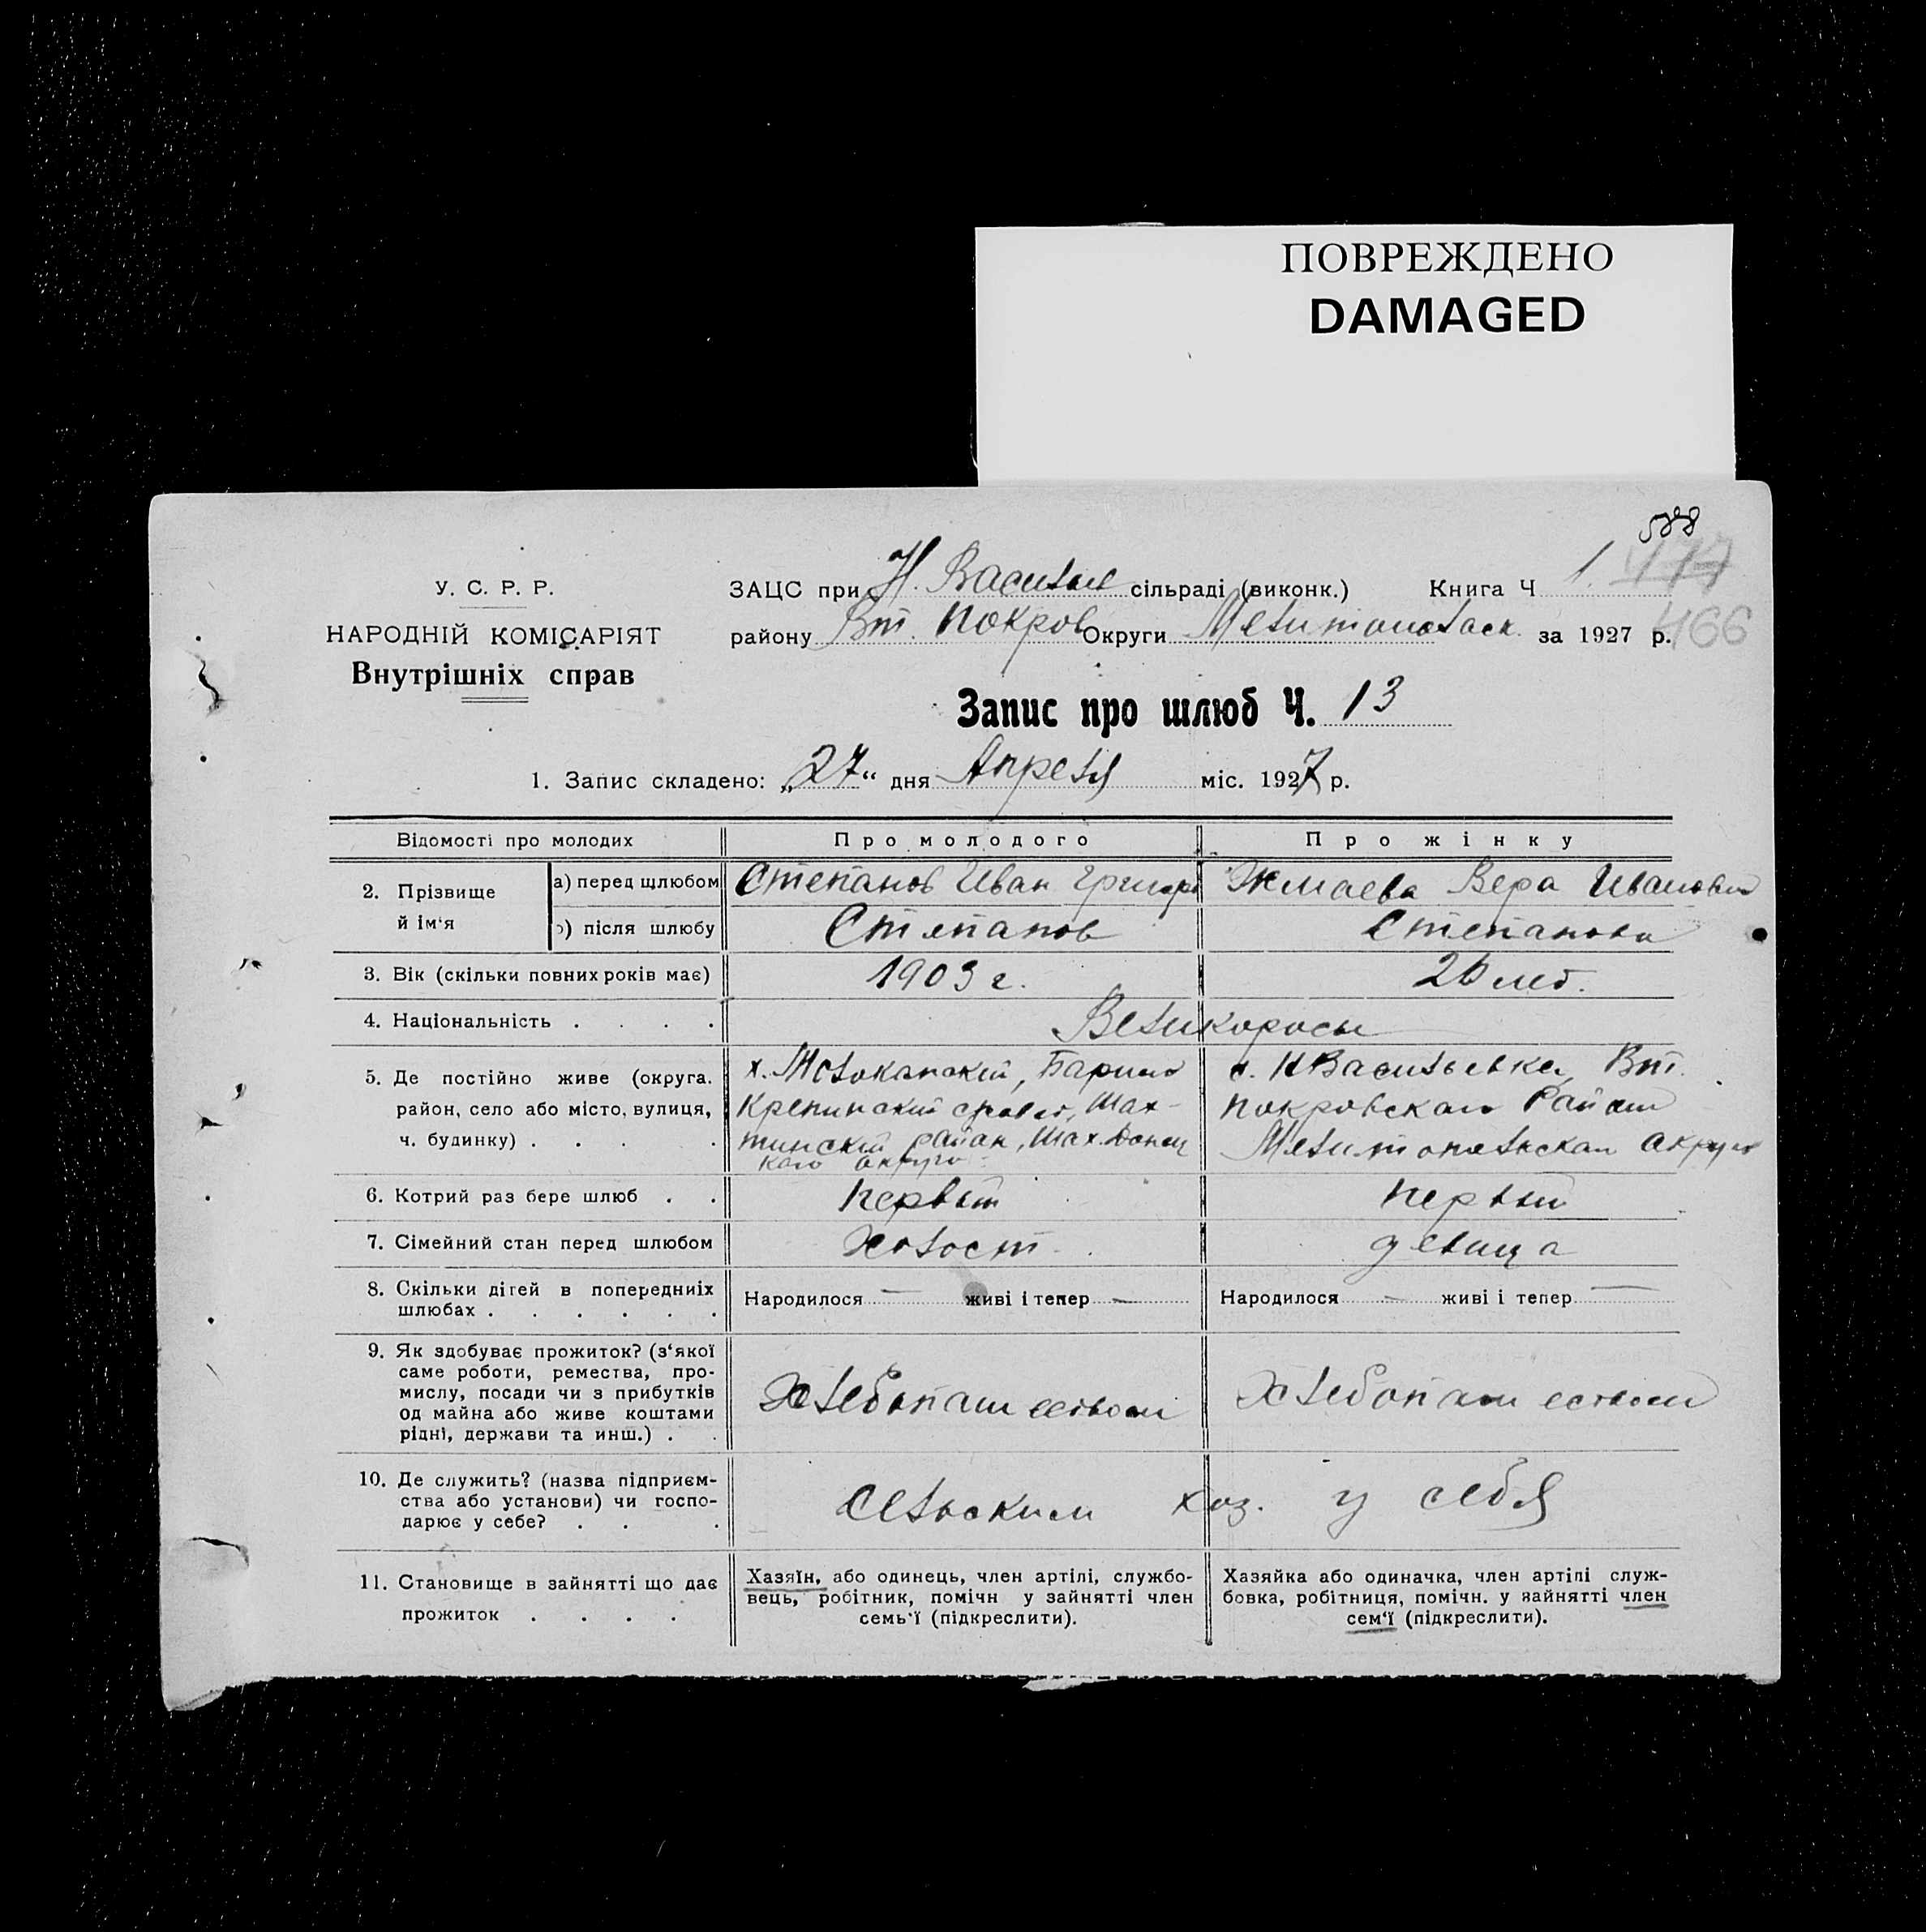 ПОВРЕЖДЕНО
DAMAGED
588
477
466
У. С. Р. Р.
НАРОДНІЙ КОМІСАРІЯТ
Внутрішніх справ
ЗАЦС при Н. Васильев сільраді (виконк.) Книга Ч 1.
району Вт. Покров Округи Мелитопольск за 1927 р.
Запис про шлюб Ч. 13
1. Запис складено: „27“ дня Апреля міс. 1927 р.
Відомості про молодих
Про молодого
Про жінку
2. Прізвище й ім‘я
а) перед щлюбом
Степанов Иван Григор
Жмаева Вера Иванови
) після шлюбу
Степанов
Степанова
3. Вік (скільки повних років має)
1903 г.
лет.
4. Національність . . . .
Великоросы
5. Де постійно живе (округа.
район, село або місто, вулиця,
ч. будинку) . . . .
х. Барило
Крепинский Шах-
тинский район, Шах. Донец
кого округа
с. Н Васильевка, Вт.
Покровского Район
Мелитопольской округ
6. Котрий раз бере шлюб . .
Первый
Первый
7. Сімейний стан перед шлюбом
Холост
девица
8. Скільки дітей в попередниіх
шлюбах . . . . . .
Народилося — живі і тепер —
Народилося — живі і тепер —
9. Як здобуває прожиток? (з‘якої
саме роботи, ремества, про-
мислу, посади чи з прибутків
од майна або живе коштами
рідні, держави та инш.) . .
Хлебопашеством
Хлебопашеством
10. Де служить? (назва підприєм-
ства або установи) чи госпо-
дарює у себе? . . .
Сельским хоз. у себя
11. Становище в зайнятті що дає
прожиток . . . .
Хазяїн, або одинець, член артілі, службо-
вець, робітник, помічн у зайнятті член
семь‘ї (підкреслити).
Хазяйка або одиначка, член артілі служ-
бовка, робітниця, помічн. у зайнятті член
сем‘ї (підкреслити).